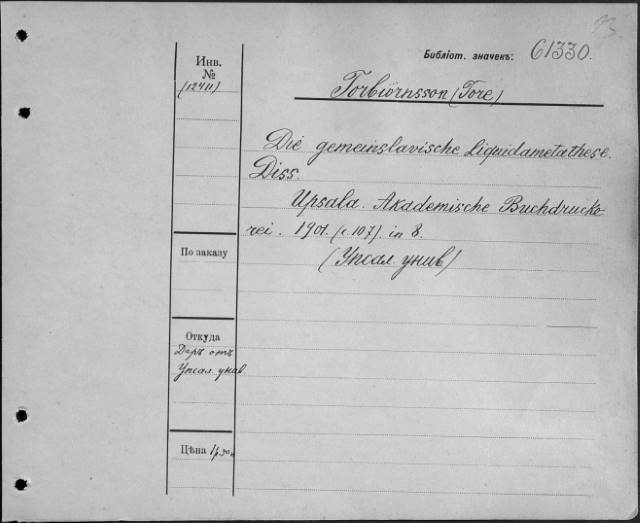 Библіот. значекъ: 61330.
Инв.
№
(12411)
Torbiörnsson (Tore)
Die gemeinslavische Liquidametathese.
Diss.
Upsala. Akademische Buchdrucke-
rei. 1901. (с. 107). in 8.
(Упсал. унив)
По заказу
Откуда
Даръ отъ
Упсал. унив.
Цѣна